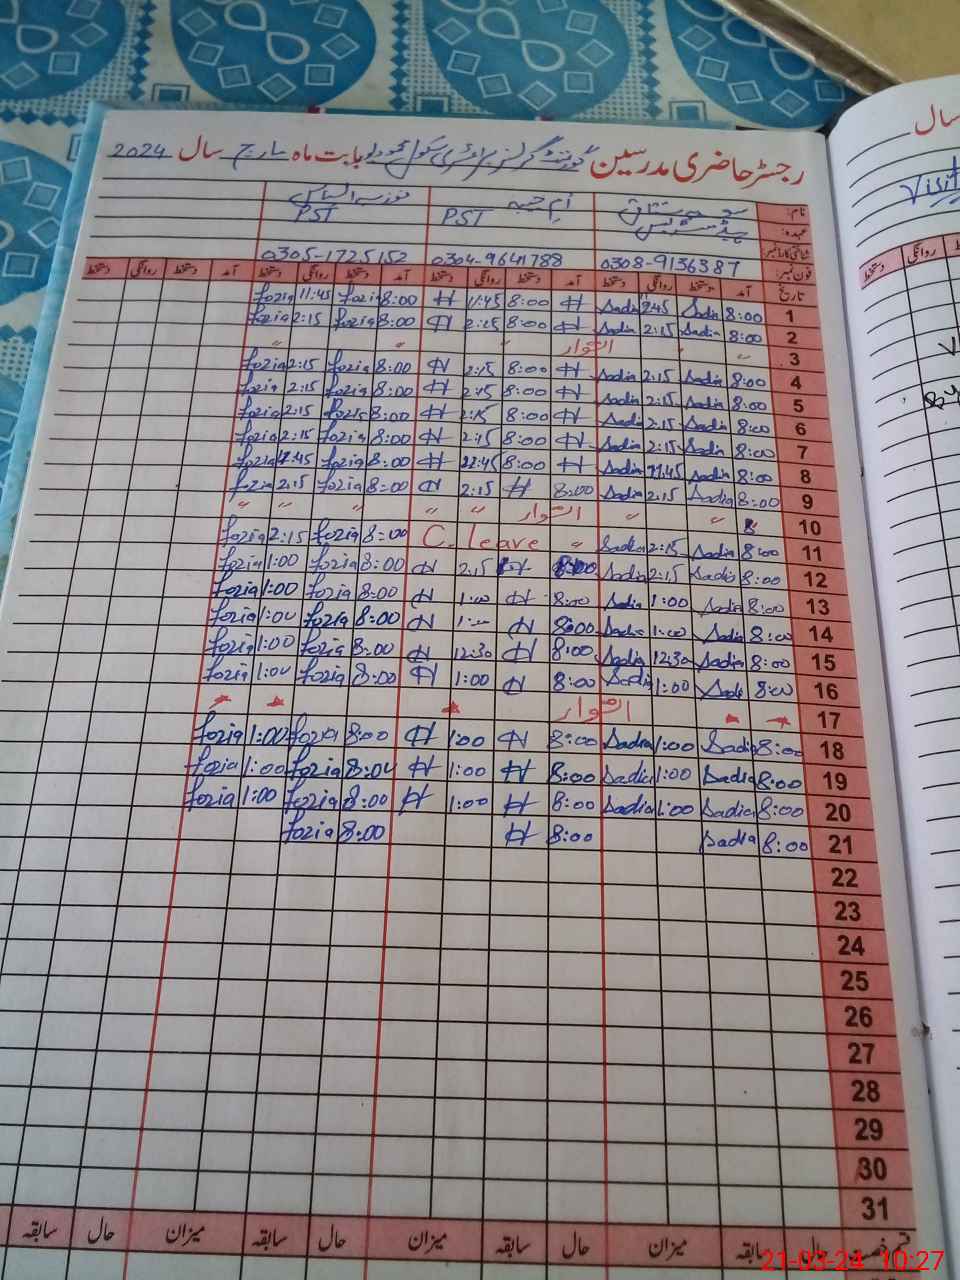 رجسٹر حاضری مدرسین گورنمنٹ گرلز پرائمری سکول بابت ماہ مارچ سال 2024
نام:
PST PST
عہدہ:
شناختی کارڈ نمبر
فون نمبر: 0308-9136387 0304-9641788 0305-1725152
تاریخ آمد دستخط روانگی دستخط آمد دستخط روانگی دستخط آمد دستخط روانگی دستخط آمد دستخط روانگی دستخط
1 8:00 Sadia 8:00 8:00 fozia 11:45 fozia
2 8:00 Sadia 2:15 Sadia 8:00 8:00 fozia 2:15 fozia
3 " " اتوار " " "
4 8:00 Sadia 2:15 Sadia 8:00 2:15 8:00 fozia 2:15 fozia
5 8:00 Sadia 2:15 Sadia 8:00 8:00 fozia 2:15 fozia
6 8:00 Sadia 2:15 Sadia 8:00 2:15 8:00 fozia 2:15 fozia
7 8:00 Sadia 2:15 Sadia 8:00 8:00 fozia 2:15 fozia
8 8:00 Sadia 11:45 Sadia 8:00 8:00 fozia fozia
9 8:00 Sadia 2:15 Sadia 8:00 2:15 8:00 fozia 2:15 fozia
10 " " اتوار " " " " " "
11 8:00 Sadia 2:15 Sadia " C. leave 8:00 fozia 2:15 fozia
12 8:00 Sadia 2:15 Sadia 2:15 8:00 fozia 1:00 fozia
13 8:00 Sadia 1:00 Sadia 8:00 1:00 8:00 fozia 1:00 fozia
14 8:00 Sadia 1:00 Sadia 8:00 1:00 8:00 fozia 1:00 fozia
15 8:00 Sadia 12:30 Sadia 8:00 12:30 8:00 fozia 1:00 fozia
16 8:00 Sadia 1:00 Sadia 8:00 1:00 8:00 fozia 1:00 fozia
17 اتوار
18 8:00 Sadia 1:00 Sadia 8:00 1:00 8:00 fozia 1:00 fozia
19 8:00 Sadia 1:00 Sadia 8:00 1:00 8:00 fozia 1:00 fozia
20 8:00 Sadia 1:00 Sadia 8:00 1:00 8:00 fozia 1:00 fozia
21 8:00 Sadia 8:00 8:00 fozia
22
23
24
25
26
27
28
29
30
31
حال سابقہ میزان حال سابقہ میزان حال سابقہ میزان حال سابقہ
سال
Visit
روانگی دستخط
21-03-24 10:27